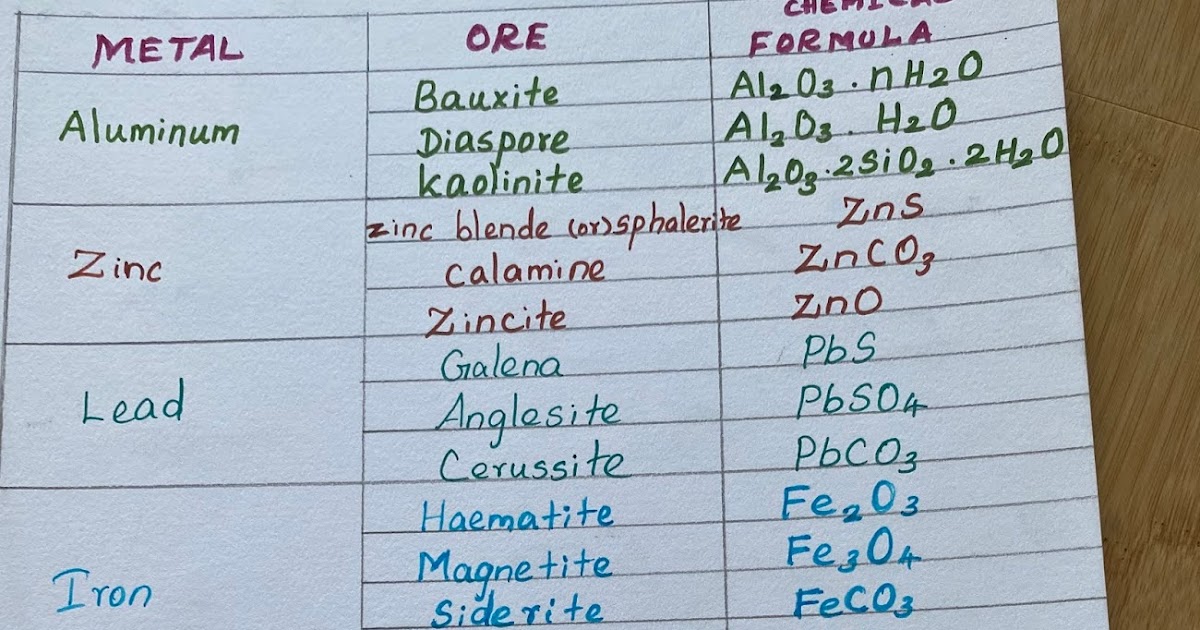 METAL ORE CHEMICAL FORMULA
Aluminum Bauxite Al₂O₃.nH₂O
Diaspore Al₂O₃.H₂O
Kaolinite Al₂O₃.2SiO₂.2H₂O
Zinc zinc blende (or) sphalerite ZnS
calamine ZnCO₃
Zincite ZnO
Lead Galena PbS
Anglesite PbSO₄
Cerussite PbCO₃
Iron Haematite Fe₂O₃
Magnetite Fe₃O₄
Siderite FeCO₃